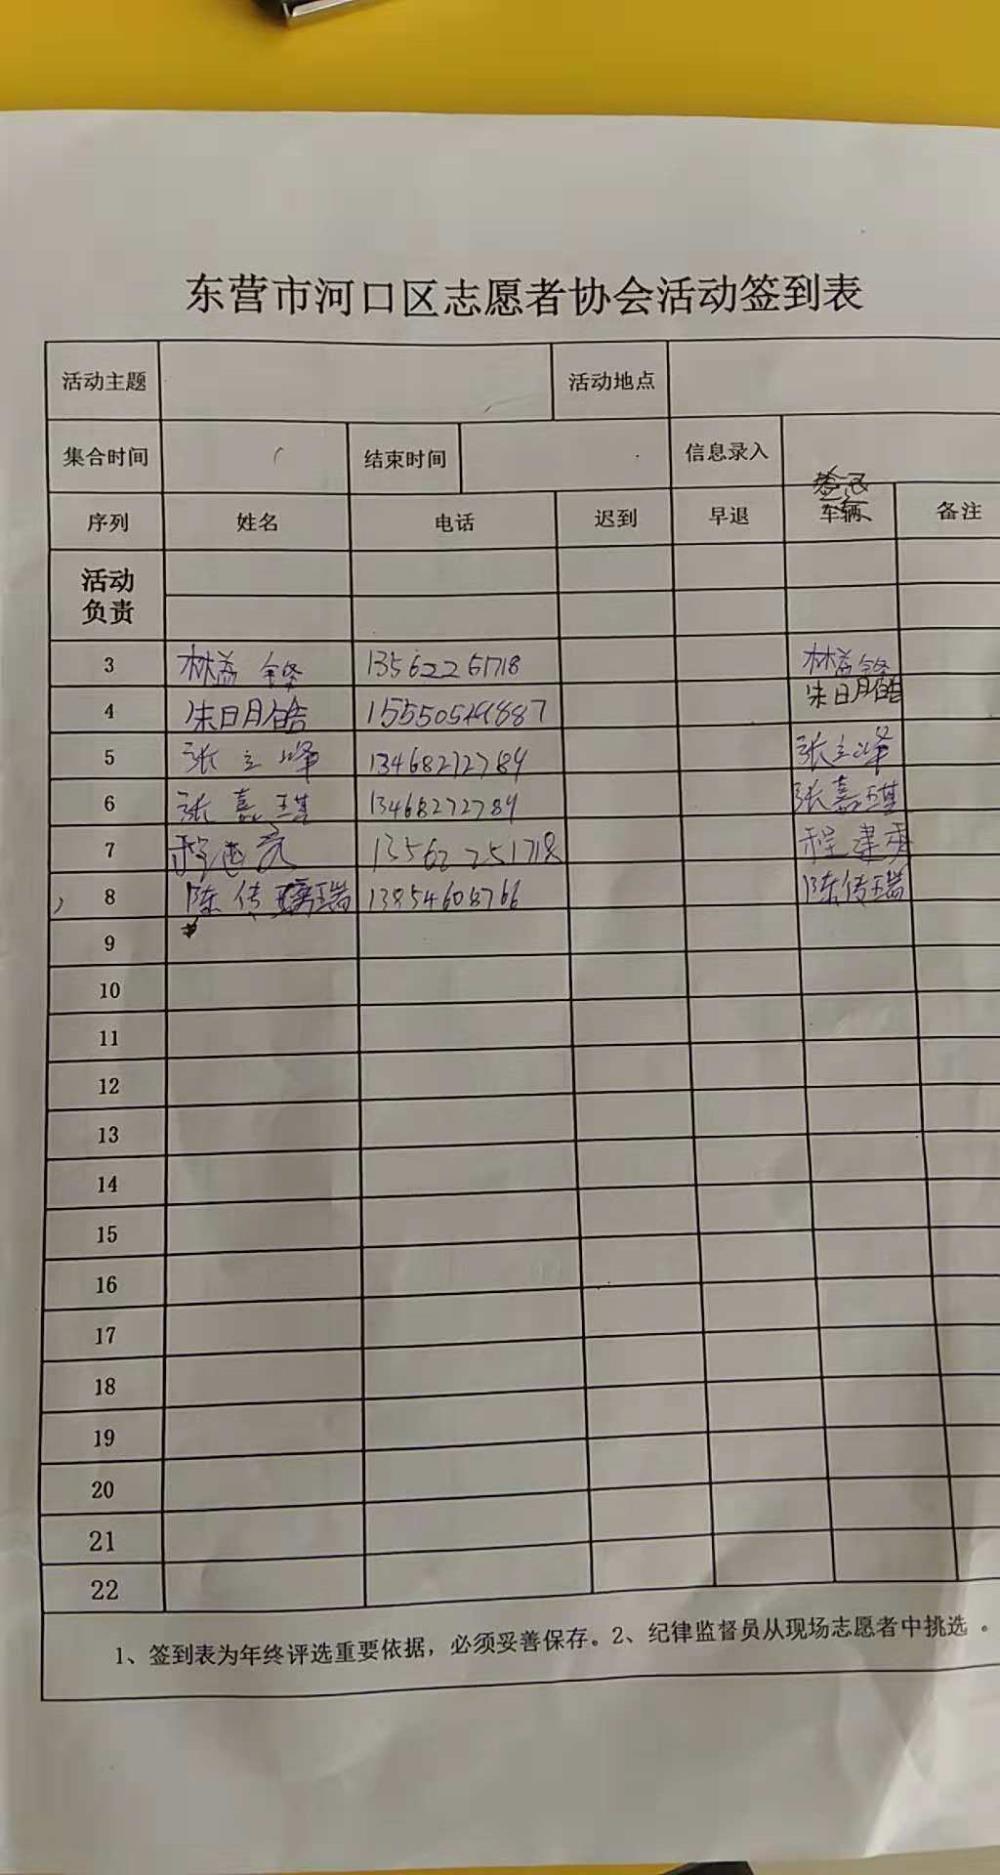 东营市河口区志愿者协会活动签到表
活动主题 活动地点
集合时间 结束时间 信息录入
签退
序列 姓名 电话 迟到 早退 车辆 备注
活动
负责
3 林益锋 13562251718 林益锋
4 朱日月皓 15550549887 朱日月皓
5 张立峰 13468272789 张立峰
6 张嘉琪 13468272789 张嘉琪
7 程建秀 13562251718 程建秀
8 陈传瑞 13854608766 陈传瑞
9
10
11
12
13
14
15
16
17
18
19
20
21
22
1、签到表为年终评选重要依据，必须妥善保存。2、纪律监督员从现场志愿者中挑选。